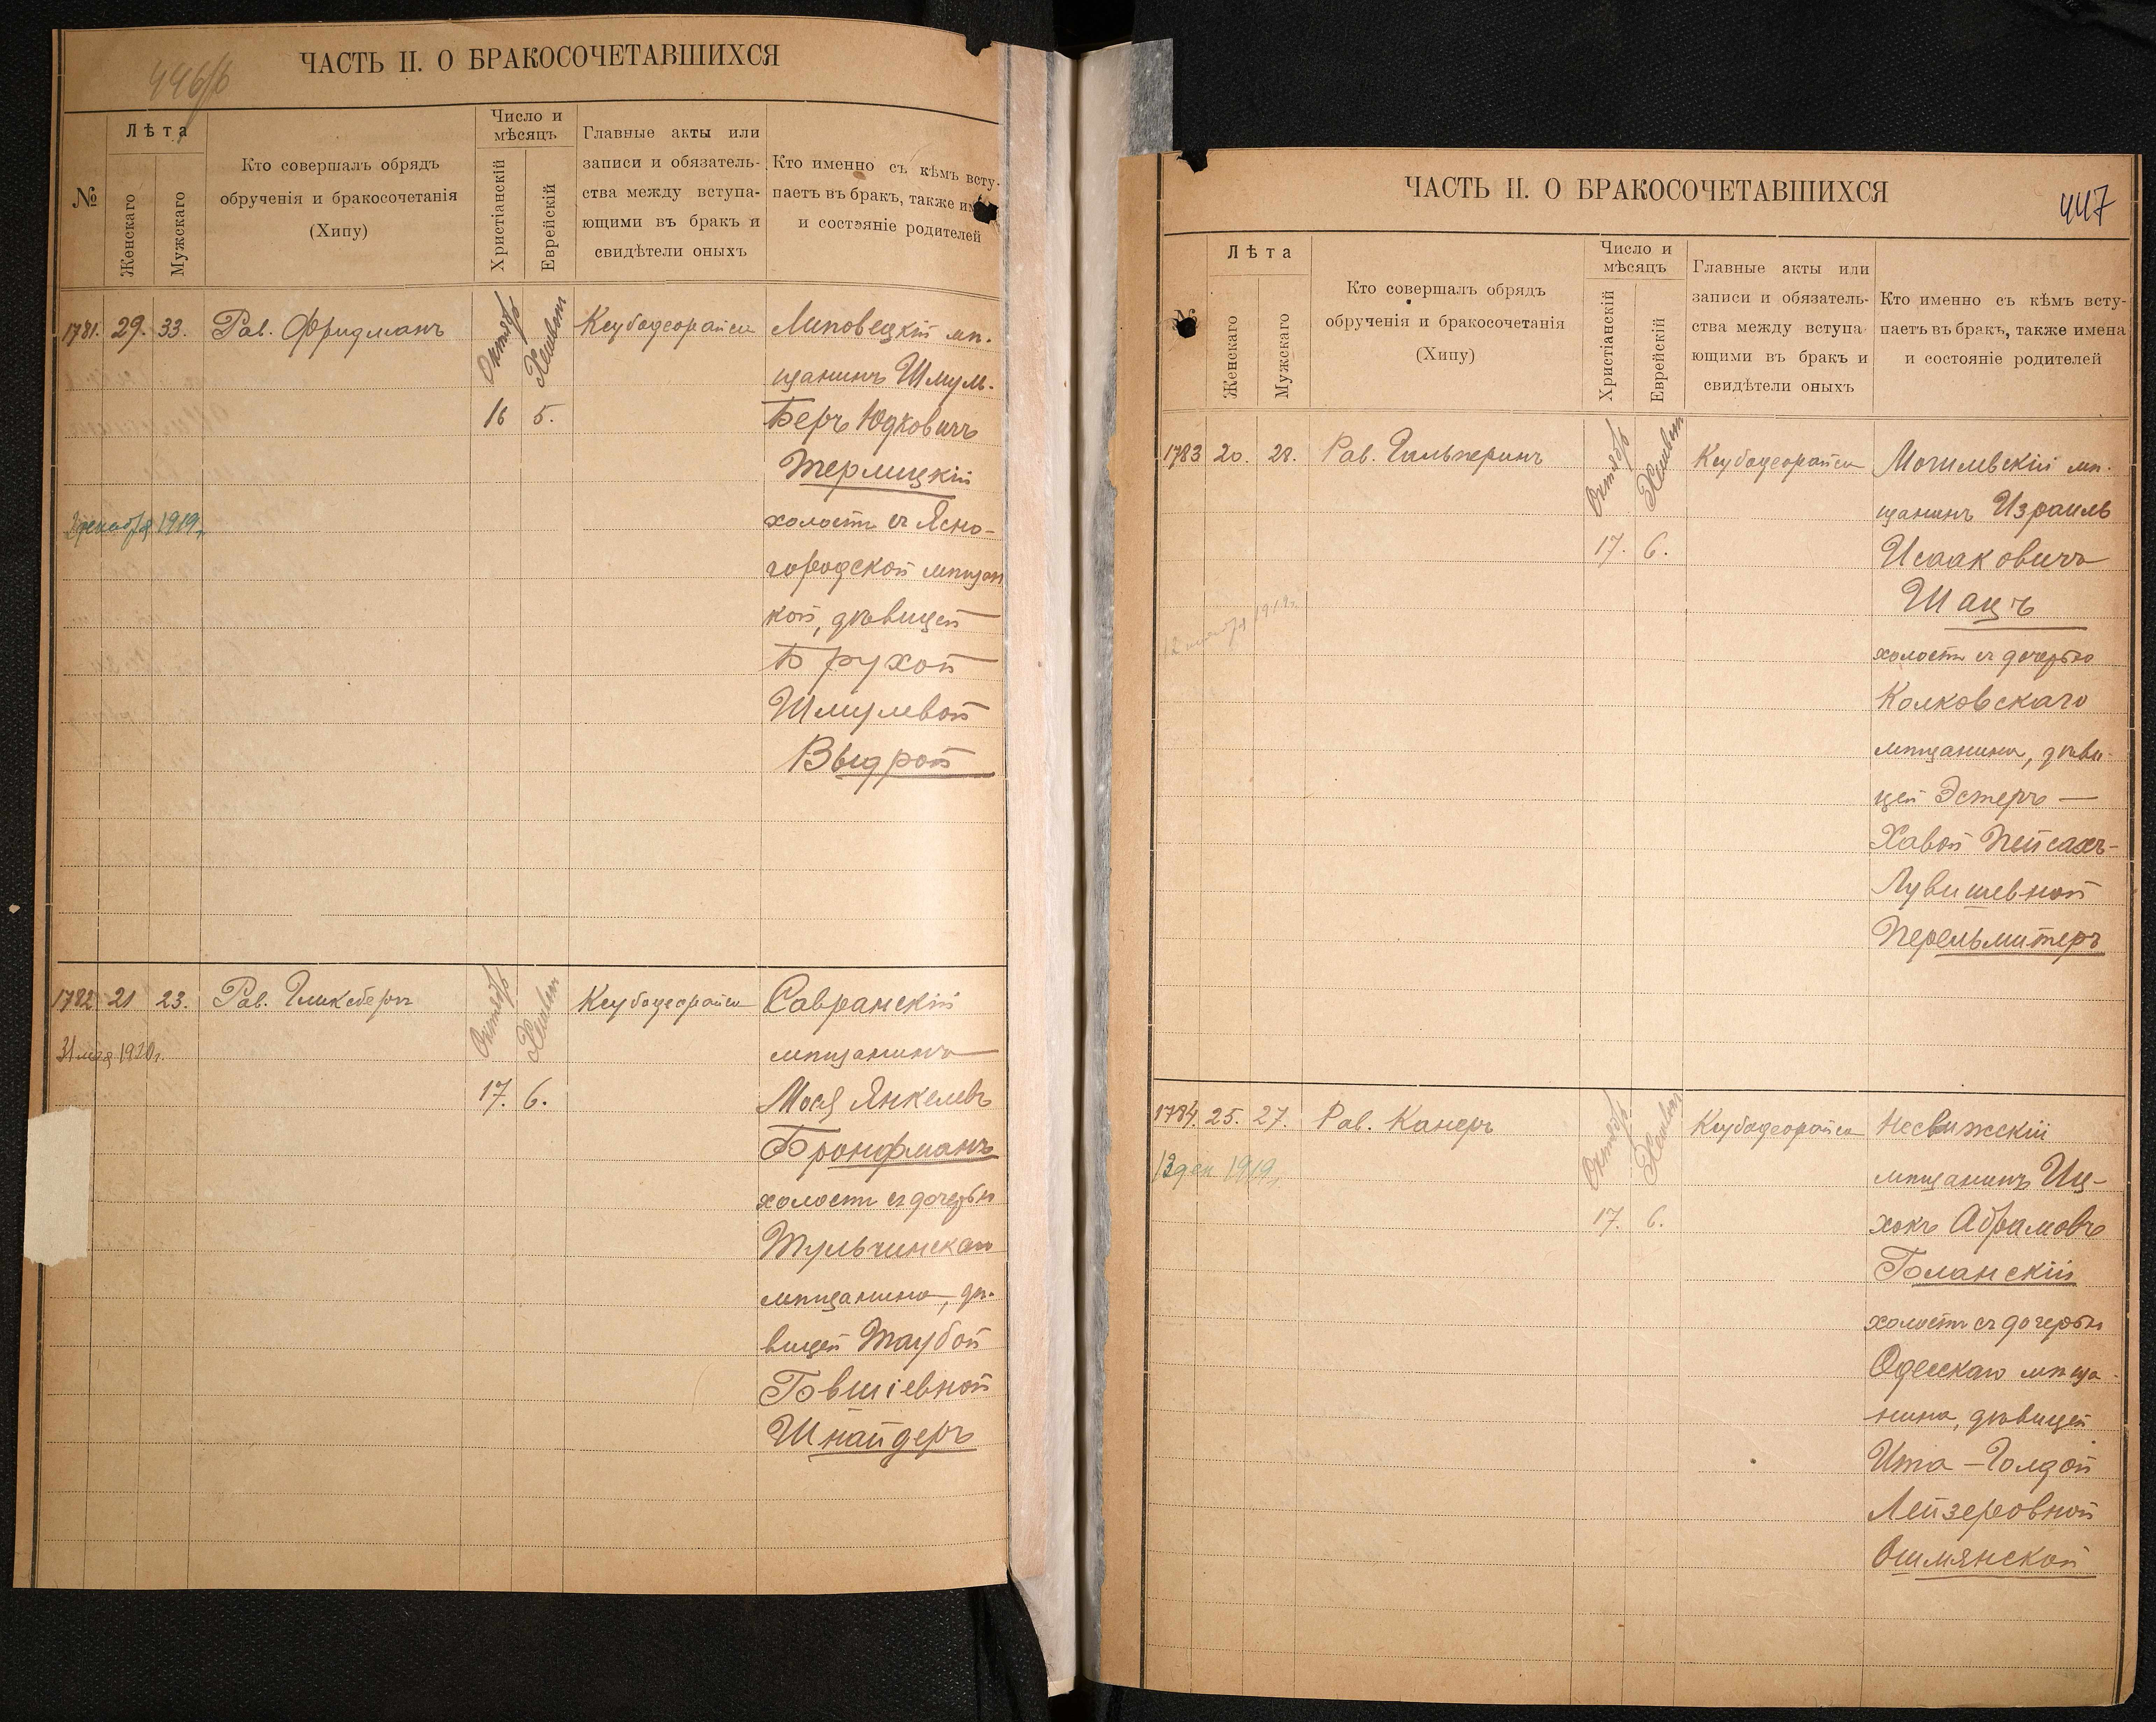 446/б
ЧАСТЬ II. О БРАКОСОЧЕТАВШИХСЯ
№
Лѣта
Женскаго
Мужскаго
Кто совершалъ обрядъ
обрученія и бракосочетанія
(Хипу)
Число и
мѣсяцъ
Христіанскій
Еврейскій
Главные акты или
записи и обязатель-
ства между вступа-
ющими въ бракъ и
свидѣтели оныхъ
Кто именно съ кѣмъ всту-
паетъ въ бракъ, также им
и состояніе родителей
1781. 29. 33. Рав. Фридманъ
Октябр
Хешвон
16 5.
Ксубодеорайса
Липовецкій мѣ-
щанинъ Шмул-
Беръ Юдковичъ
Терлицкій
холостъ съ Ясно-
городской мѣщан
кой, дѣвицей
Брухой
Шмулевой
Выдрой
декабря 1919г.
1782 21 23. Рав. Гликсбергъ
31 мая 1920г.
Октябр
Хешвон
17. 6.
Ксубодеорайса
Савранскій
мѣщанинъ
Мося Янкелевъ
Бронфманъ
холостъ съ дочерью
Тульчинскаго
мѣщанина, дѣ-
вицей Таубой
Говшіевной
Шнайдеръ
ЧАСТЬ II. О БРАКОСОЧЕТАВШИХСЯ
447
№
Лѣта
Женскаго
Мужскаго
Кто совершалъ обрядъ
обрученія и бракосочетанія
(Хипу)
Число и
мѣсяцъ
Христіанскій
Еврейскій
Главные акты или
записи и обязатель-
ства между вступа
ющими въ бракъ и
свидѣтели оныхъ
Кто именно съ кѣмъ всту-
паетъ въ бракъ, также имена
и состояніе родителей
1783 20. 28. Рав. Гальперинъ
Октябр
Хешвон
17. 6.
Ксубодеорайса
Могилевскій мѣ-
щанинъ Израиль
Исааковичъ
Шацъ
холостъ съ дочерью
Колковскаго
мѣщанина, дѣви-
цей Эстеръ —
Хавой Пейсахъ-
Лувишевной
Перельмитеръ
12 1919г.
1784. 25. 27. Рав. Канеръ
12 дек 1919г.
Октябр
Хешвон
17. 6.
Ксубодеорайса
Несвижскій
мѣщанинъ Иц-
хокъ Абрамовъ
Голанскій
холостъ съ дочерью
Одесскаго мѣща-
нина, дѣвицей
Ита-Голдой
Лейзеровной
Ошмянской